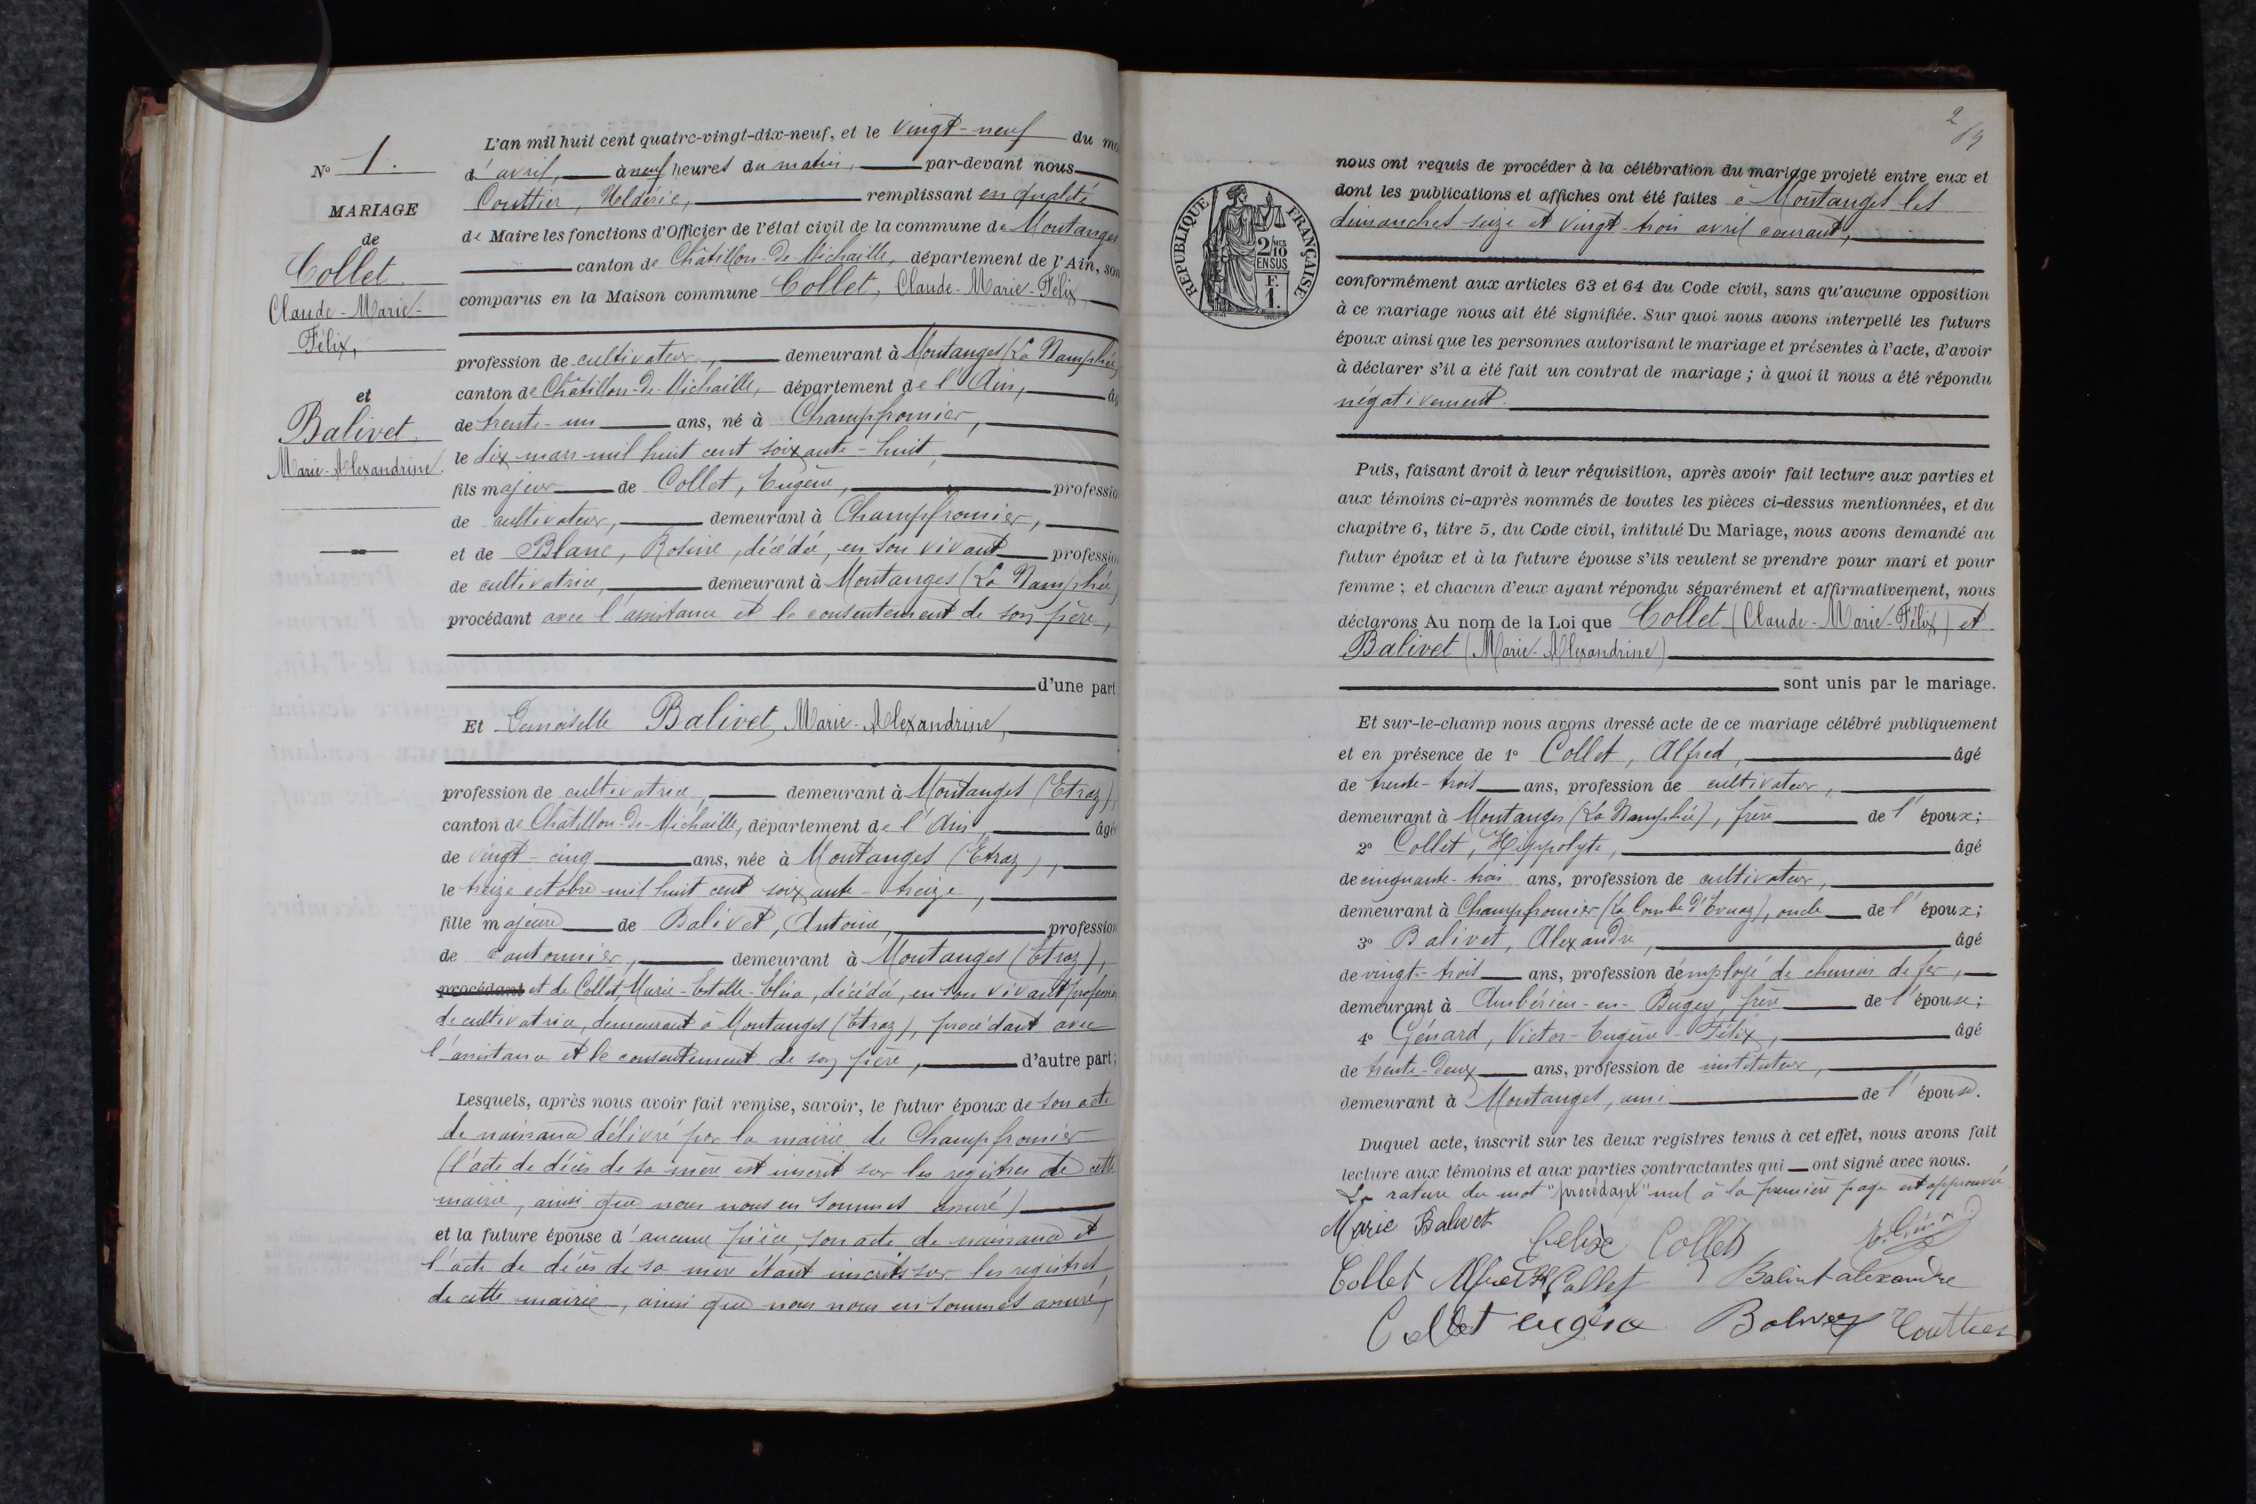 N° 1.
MARIAGE
de
Collet
Claude-Marie-
Félix,
et
Balivet
Marie-Alexandrine.
L'an mil huit cent quatre-vingt-dix-neuf, et le vingt-neuf du mo
d'avril, à neuf heures du matin, par-devant nous
Couttier, remplissant en qualité
de Maire les fonctions d'Officier de l'état civil de la commune de Montanges
canton de Châtillon-de-Michaille, département de l'Ain, son
comparus en la Maison commune Collet, Claude-Marie-Félix,
profession de cultivateur, demeurant à Montanges (La Namphée),
canton de Châtillon-de-Michaille, département de l'Ain, âg
de trente-un ans, né à Champfromier,
le dix mars mil huit cent soixante-huit,
fils majeur de Collet, Eugène, professio
de cultivateur, demeurant à Champfromier,
et de Blanc, Rosine, décédée, en son vivant professio
de cultivatrice, demeurant à Montanges (La Namphée)
procédant avec l'assistance et le consentement de son père,
d'une part
Et Demoiselle Balivet, Marie-Alexandrine,
profession de cultivatrice, demeurant à Montanges (Etraz),
canton de Châtillon-de-Michaille, département de l'Ain, âgé
de vingt-cinq ans, née à Montanges (Etraz),
le treize octobre mil huit cent soixante-treize,
fille majeure de Balivet, Antoine, profession
de cantonnier, demeurant à Montanges (Etraz),
procédant et de Collet, Marie-Estelle-Eléa, décédée, en son vivant profession
de cultivatrice, demeurant à Montanges (Etraz), procédant avec
l'assistance et le consentement de son père, d'autre part;
Lesquels, après nous avoir fait remise, savoir, le futur époux de son acte
de naissance délivré par la mairie de Champfromier
(l'acte de décès de sa mère est inscrit sur les registres de cette
mairie, ainsi que nous nous en sommes assuré)
et la future épouse d'aucune pièce, son acte de naissance et
l'acte de décès de sa mère étant inscrits sur les registres
de cette mairie, ainsi que nous nous en sommes assuré,
2
19
RÉPUBLIQUE FRANÇAISE
2/10 MES
EN SUS
F.
1.
nous ont requis de procéder à la célébration du mariage projeté entre eux et
dont les publications et affiches ont été faites à Montanges les
dimanches seize et vingt-trois avril courant,
conformément aux articles 63 et 64 du Code civil, sans qu'aucune opposition
à ce mariage nous ait été signifiée. Sur quoi nous avons interpellé les futurs
époux ainsi que les personnes autorisant le mariage et présentes à l'acte, d'avoir
à déclarer s'il a été fait un contrat de mariage; à quoi il nous a été répondu
négativement.
Puis, faisant droit à leur réquisition, après avoir fait lecture aux parties et
aux témoins ci-après nommés de toutes les pièces ci-dessus mentionnées, et du
chapitre 6, titre 5, du Code civil, intitulé Du Mariage, nous avons demandé au
futur époux et à la future épouse s'ils veulent se prendre pour mari et pour
femme; et chacun d'eux ayant répondu séparément et affirmativement, nous
déclarons Au nom de la Loi que Collet (Claude-Marie-Félix) et
Balivet (Marie-Alexandrine)
sont unis par le mariage.
Et sur-le-champ nous avons dressé acte de ce mariage célébré publiquement
et en présence de 1° Collet, Alfred, âgé
de trente-trois ans, profession de cultivateur,
demeurant à Montanges (La Namphée), frère de l'époux;
2° Collet, Hippolyte, âgé
de cinquante-trois ans, profession de cultivateur,
demeurant à Champfromier (La Combe d'Evuaz), oncle de l'époux;
3° Balivet, Alexandre, âgé
de vingt-trois ans, profession d'employé de chemin de fer,
demeurant à Ambérieu-en-Bugey, frère de l'épouse;
4° Génard, Victor-Eugène-Félix, âgé
de trente-deux ans, profession de instituteur,
demeurant à Montanges, ami de l'épouse.
Duquel acte, inscrit sur les deux registres tenus à cet effet, nous avons fait
lecture aux témoins et aux parties contractantes qui ont signé avec nous.
La rature du mot "procédant" nul à la première page est approuvée
Marie Balivet Felix Collet
Collet Alfred H Collet Balivet alexandre
Collet eugène Balivet Couttier